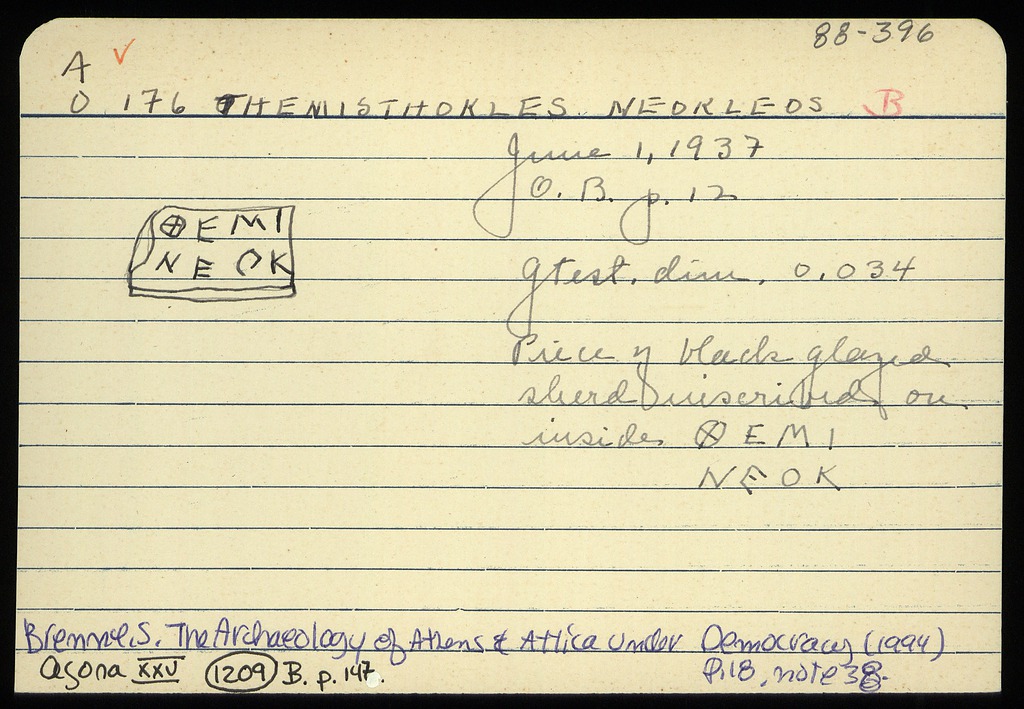 88-396
A ✓
O 176 THEMISTHOKLES NEOKLEOS B
June 1, 1937
O. B. p. 12
⊕EMI
NEOK
gtest. dim. 0.034
Piece of black glazed
sherd inscribed on
inside ⊗EMI
NEOK
Brenne, S. The Archaeology of Athens & Attica under Democracy (1994)
P.18, note 38.
Agora XXV 1209 B. p. 147.